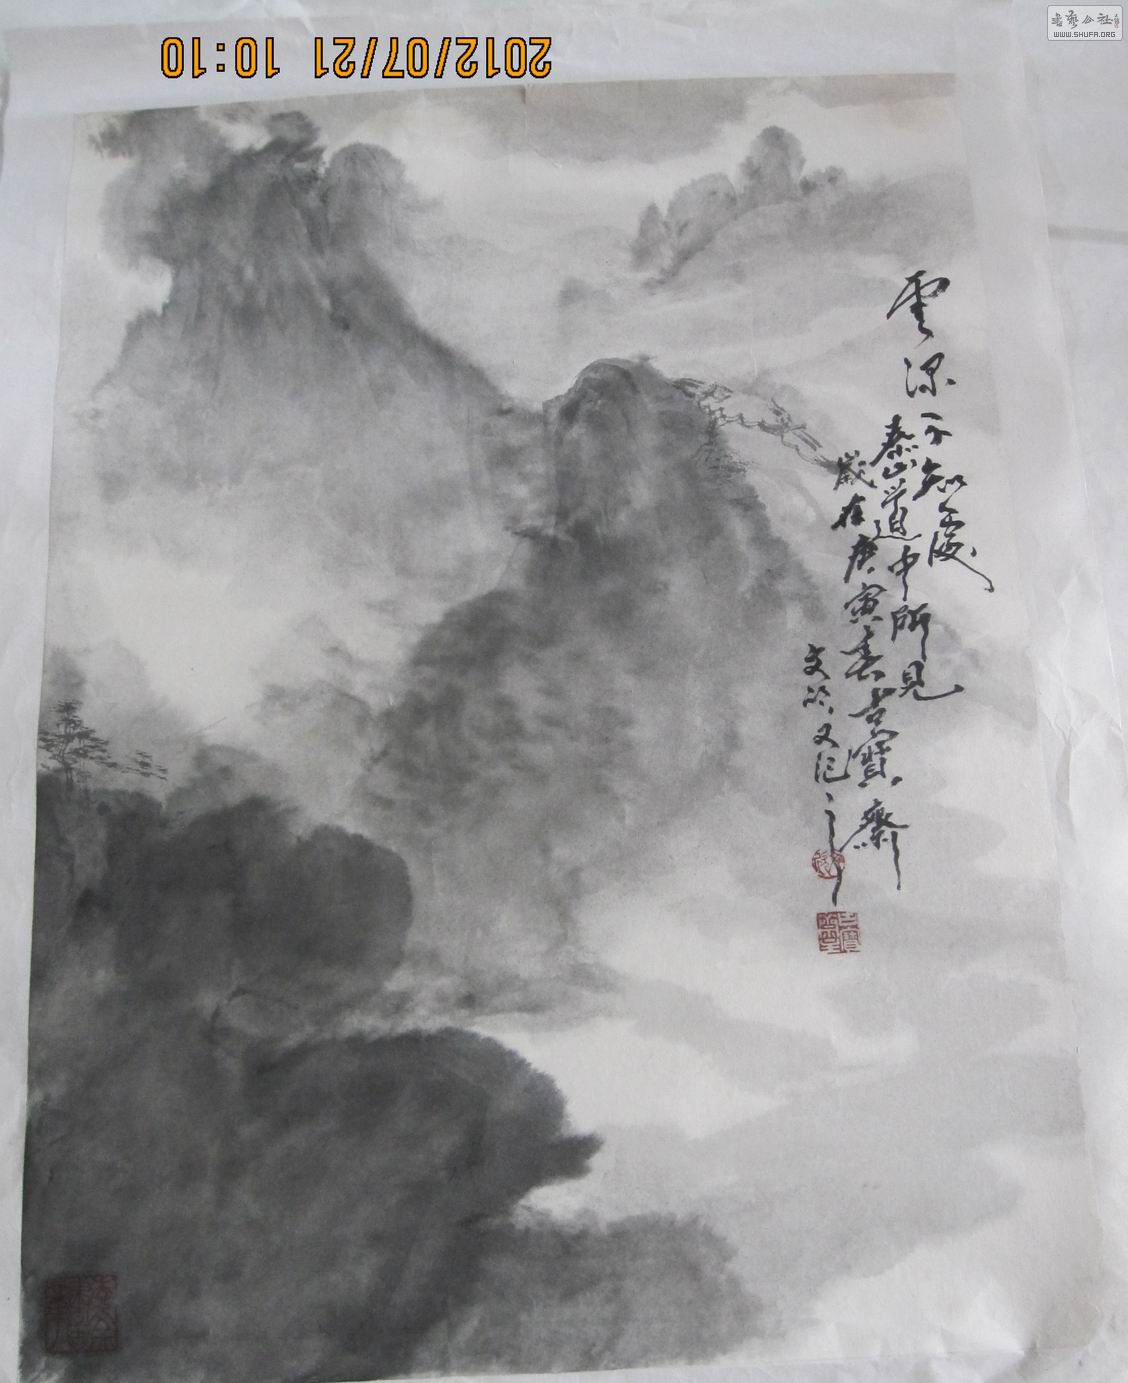 2012/07/21 10:10
書藝公社
WWW.SHUFA.ORG
雲深不知處
泰山道中所見
歲在庚寅春吉寶齋
文
又记之